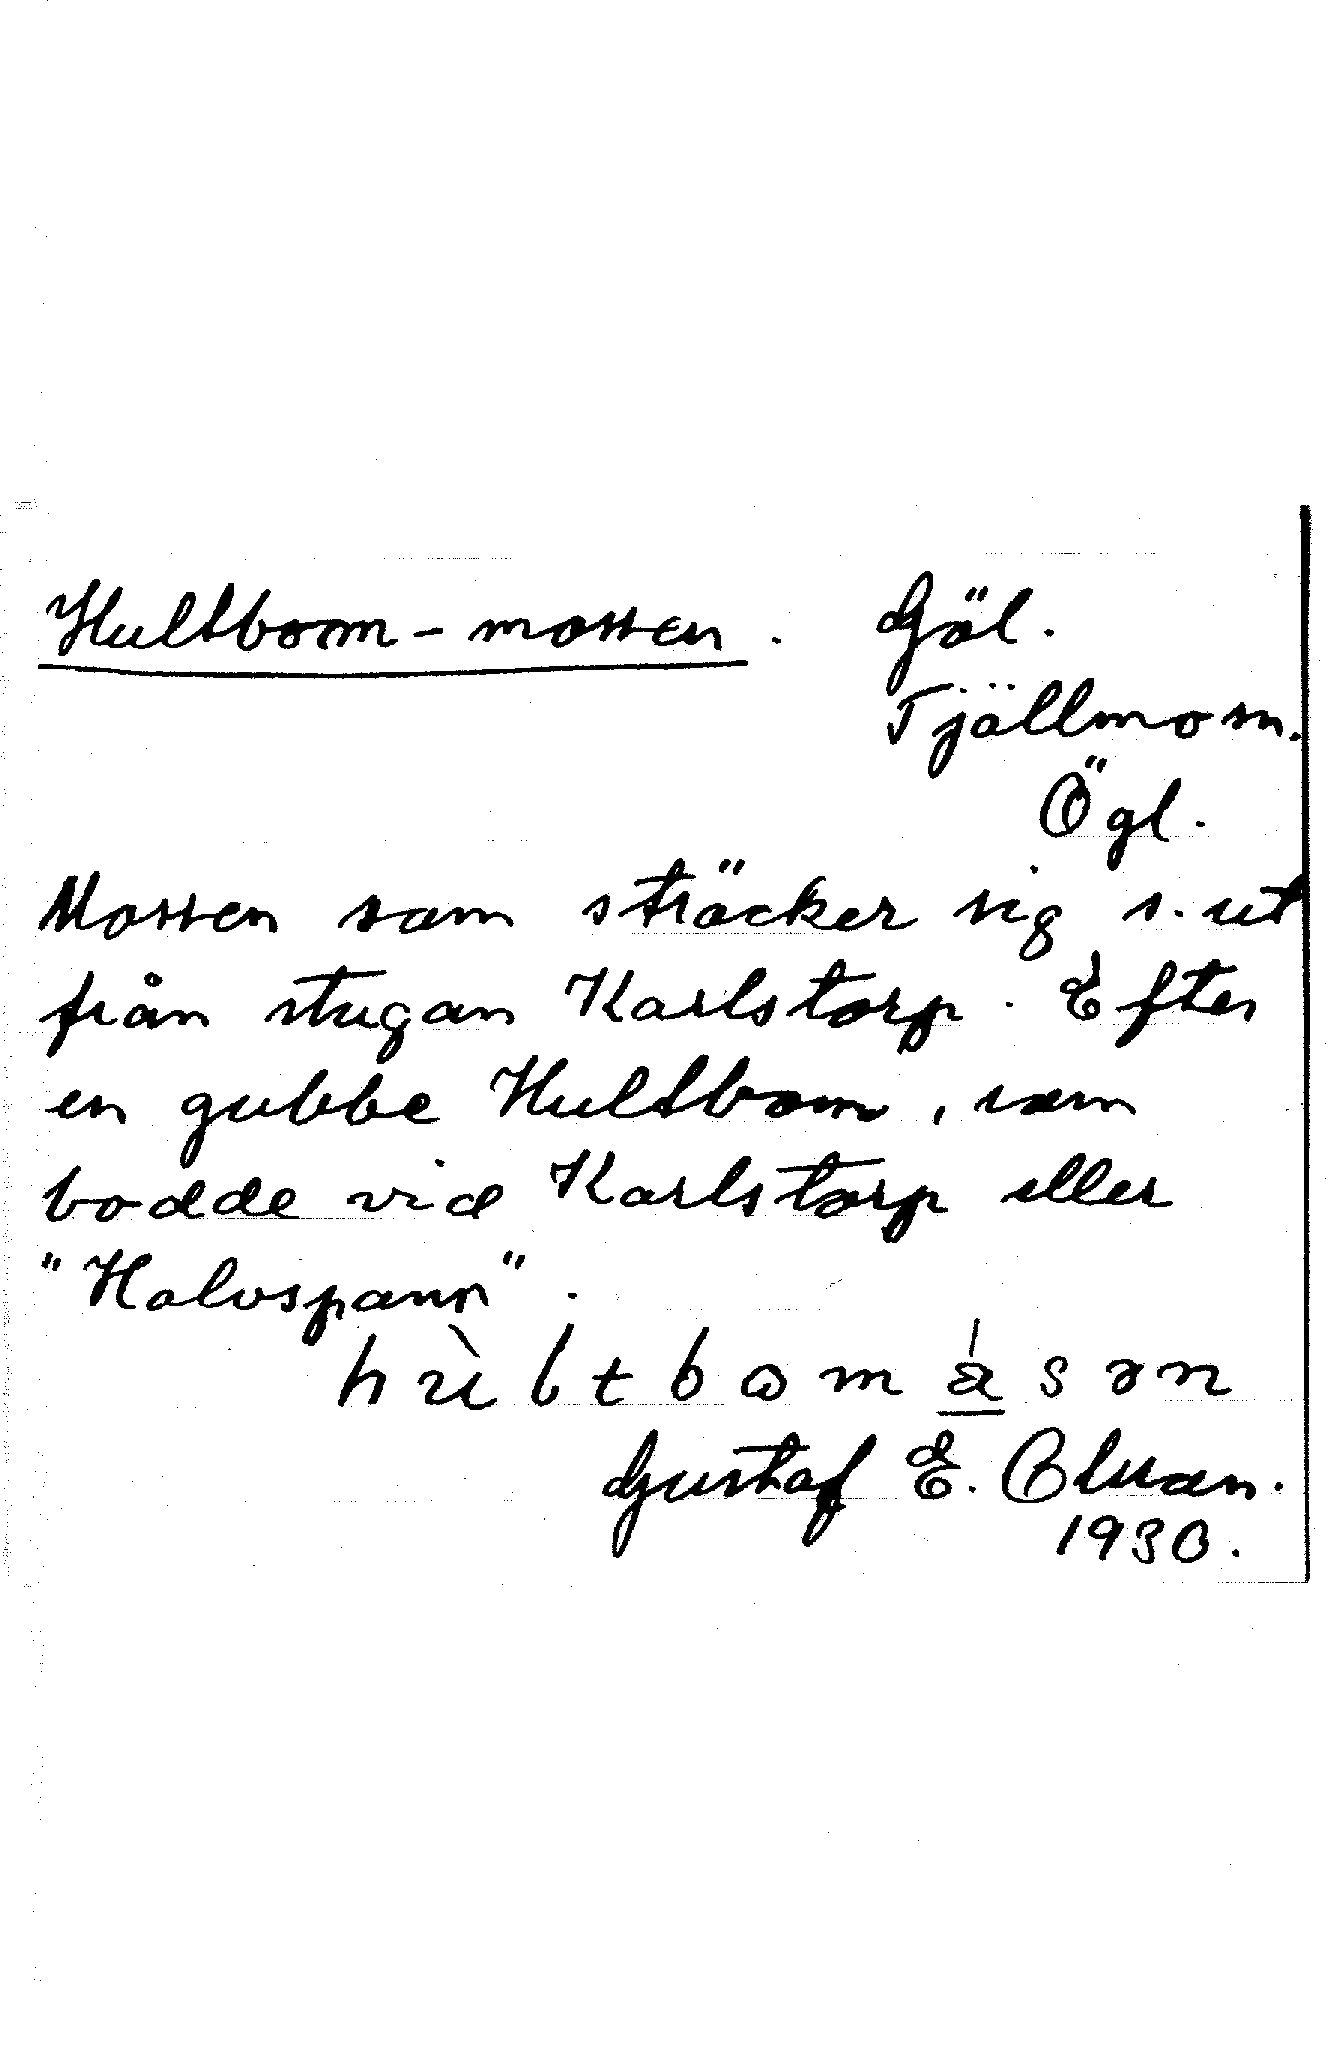 Hultbom-mossen. Göl.
Tjällmo sn.
Ögl.
Mossen som sträcker sig s. ut
från stugan Karlstorp. Efter
en gubbe Hultbom, som
bodde vid Karlstorp eller
"Halvspann".
hùltbom
Gustaf E.
1930.